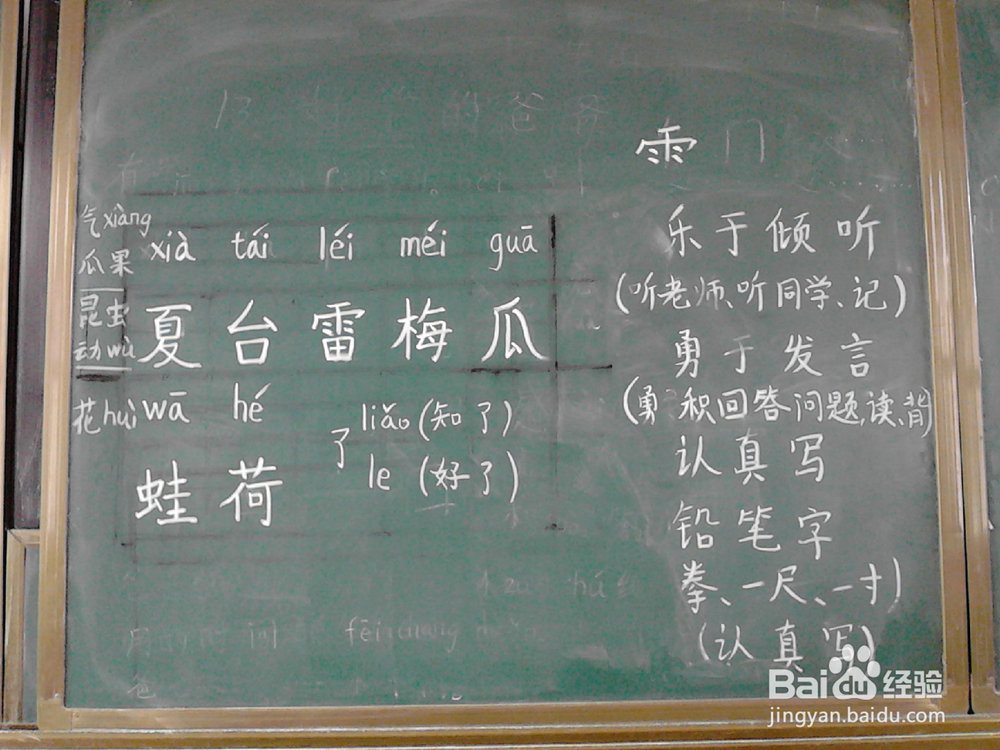 雨 门
气xiàng
瓜果
昆虫
动wù
花huì
xià tái léi méi guā
夏 台 雷 梅 瓜
wā hé
蛙 荷
了
liǎo (知了)
le (好了)
乐于倾听
(听老师、听同学、记)
勇于发言
(勇 积回答问题,读、背)
认真写
铅笔字
拳、一尺、一寸)
(认真写)
Baidu经验
jingyan.baidu.com